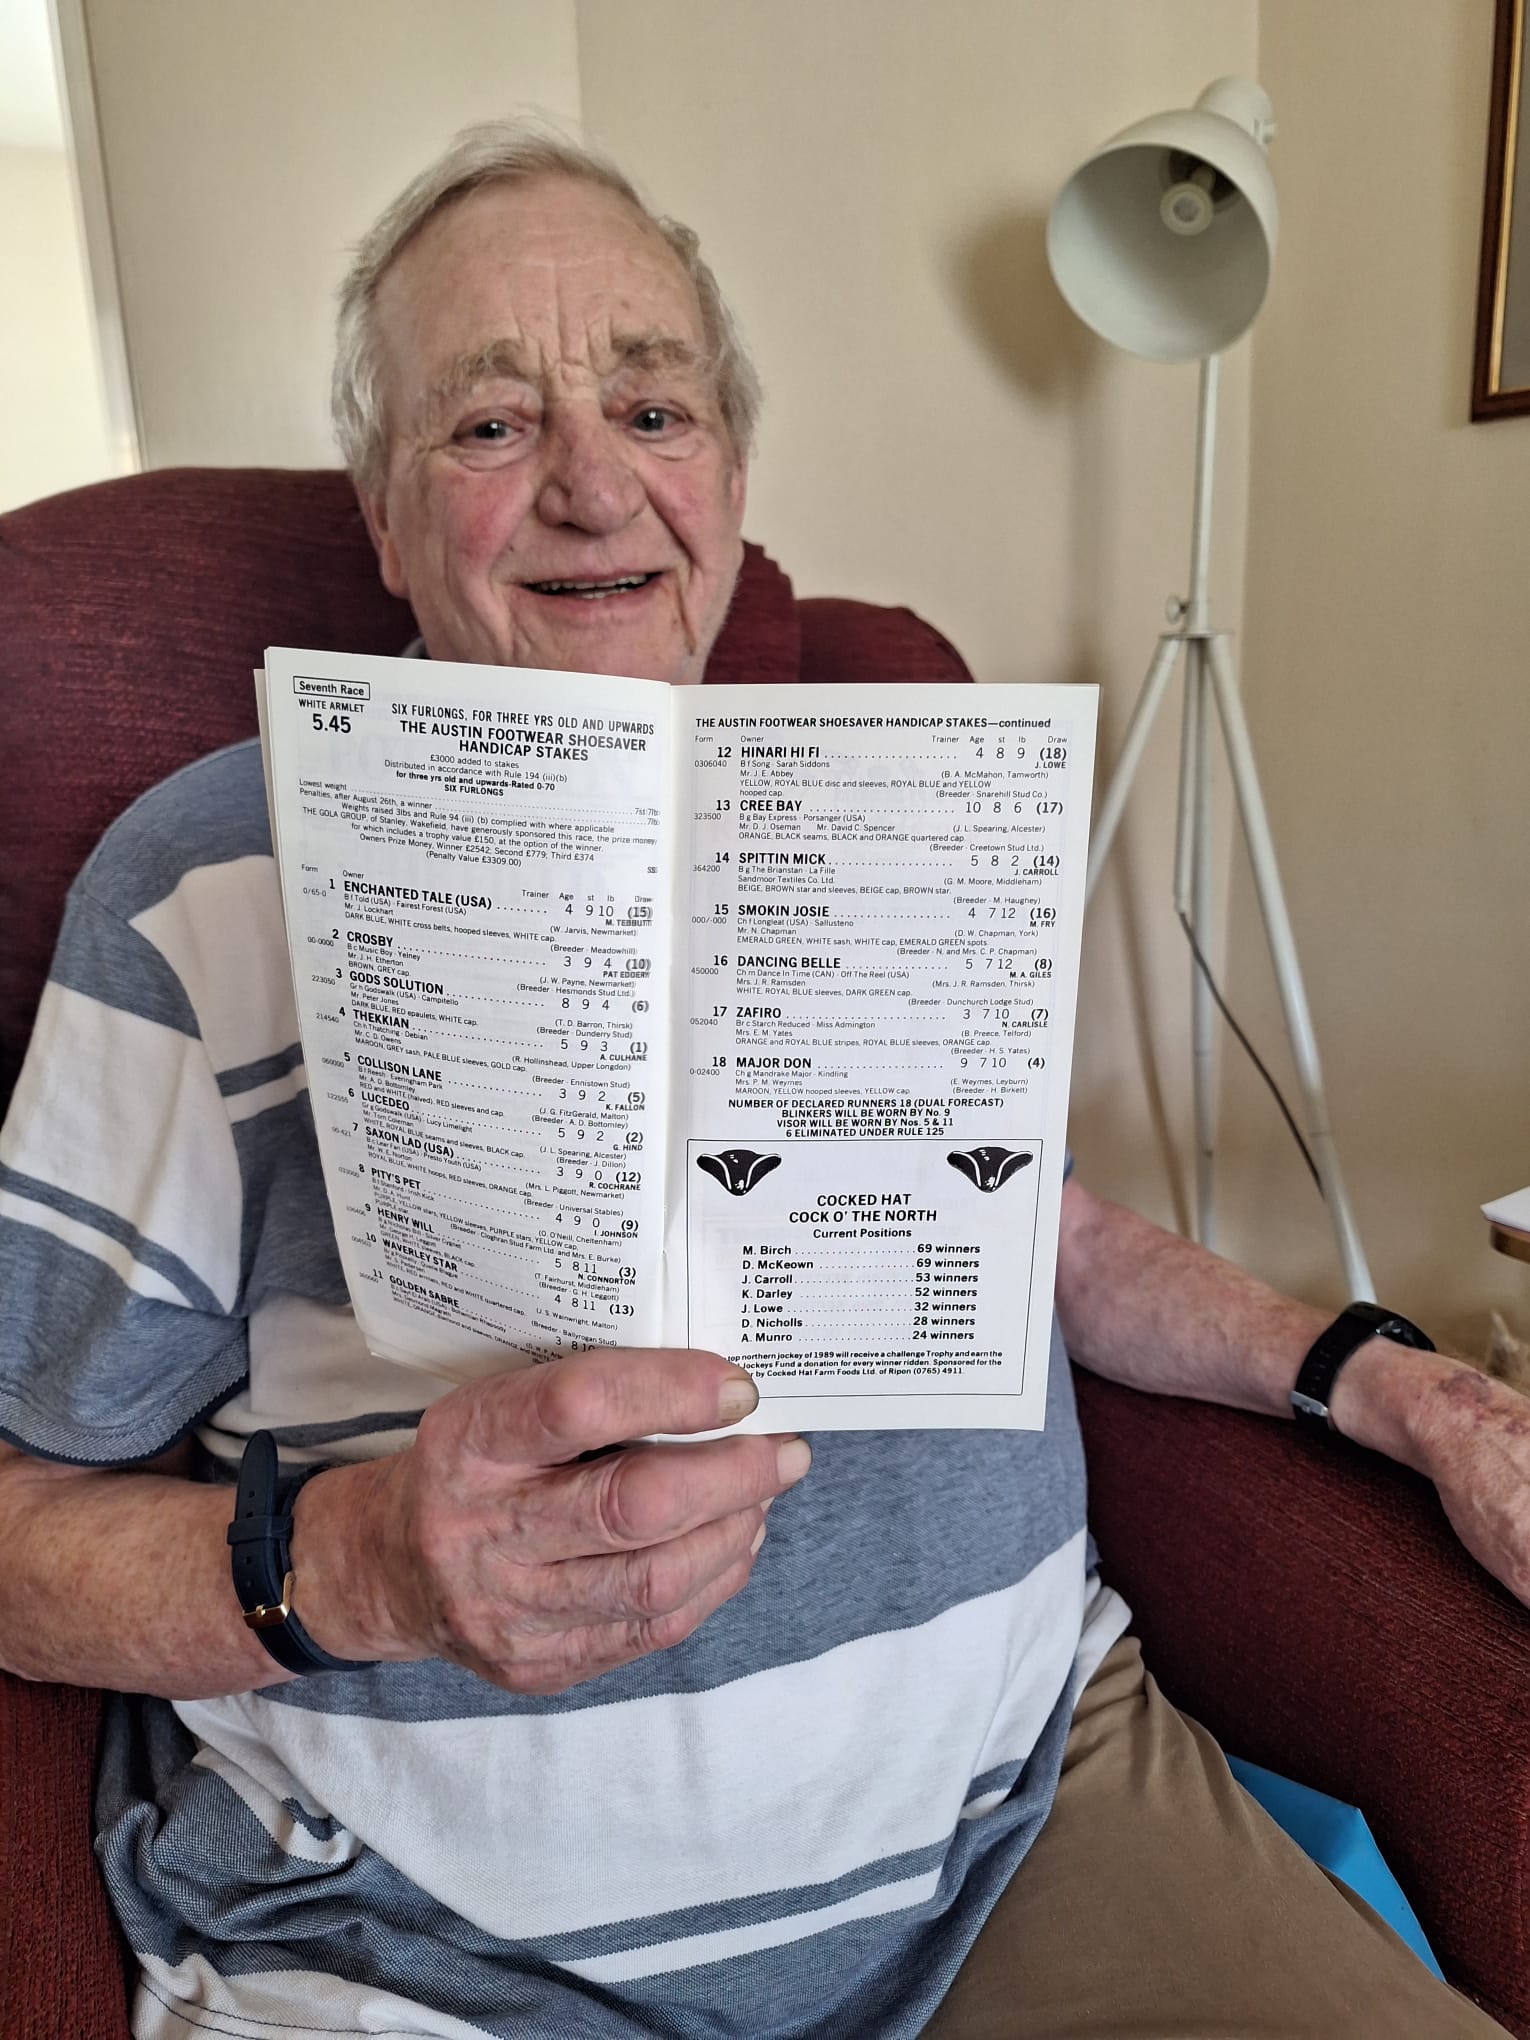 Seventh Race
WHITE ARMLET
5.45
SIX FURLONGS, FOR THREE YRS OLD AND UPWARDS
THE AUSTIN FOOTWEAR SHOESAVER
HANDICAP STAKES
£3000 added to stakes
Distributed in accordance with Rule 194 (iii)(b)
for three yrs old and upwards-Rated 0-70
SIX FURLONGS
Lowest weight 7st 7lb
Penalties, after August 26th, a winner 7lb
Weights raised 3lbs and Rule 94 (iii) (b) complied with where applicable
THE GOLA GROUP, of Stanley, Wakefield, have generously sponsored this race, the prize money
for which includes a trophy value £150, at the option of the winner.
Owners Prize Money, Winner £2542; Second £779; Third £374
(Penalty Value £3309.00)
Form Owner Trainer Age st lb Draw
1 ENCHANTED TALE (USA) 4 9 10 (15)
0/65-0 B f Told (USA) - Fairest Forest (USA) M. TEBBUTT
Mr. J. Lockhart (W. Jarvis, Newmarket)
DARK BLUE, WHITE cross belts, hooped sleeves, WHITE cap.
(Breeder - Meadowhill)
2 CROSBY 3 9 4 (10)
00-0000 B c Music Boy - Yelney PAT EDDERY
Mr. J. H. Etherton (J. W. Payne, Newmarket)
BROWN, GREY cap. (Breeder - Hesmonds Stud Ltd.)
3 GODS SOLUTION 8 9 4 (6)
223050 Gr h Godswalk (USA) - Campitello
Mr. Peter Jones (T. D. Barron, Thirsk)
DARK BLUE, RED epaulets, WHITE cap. (Breeder - Dunderry Stud)
4 THEKKIAN 5 9 3 (1)
214540 Ch h Thatching - Debian A. CULHANE
Mr. C. D. Owens (R. Hollinshead, Upper Longdon)
MAROON, GREY sash, PALE BLUE sleeves, GOLD cap.
(Breeder - Ennistown Stud)
5 COLLISON LANE 3 9 2 (5)
060000 B f Reesh - Everingham Park K. FALLON
Mr. A. D. Bottomley (J. G. FitzGerald, Malton)
RED and WHITE (halved), RED sleeves and cap. (Breeder - A. D. Bottomley)
6 LUCEDEO 5 9 2 (2)
122555 Gr g Godswalk (USA) - Lucy Limelight G. HIND
Mr. Tom Coleman (J. L. Spearing, Alcester)
WHITE, ROYAL BLUE seams and sleeves, BLACK cap. (Breeder - J. Dillon)
7 SAXON LAD (USA) 3 9 0 (12)
00-421 B c Lear Fan (USA) - Presto Youth (USA) R. COCHRANE
Mr. W. E. Norton (Mrs. L. Piggott, Newmarket)
ROYAL BLUE, WHITE hoops, RED sleeves, ORANGE cap.
(Breeder - Universal Stables)
8 PITY'S PET 4 9 0 (9)
B f Stanford - Irish Kick I. JOHNSON
Mr. D. A. Hunt (O. O'Neill, Cheltenham)
PURPLE, YELLOW stars, YELLOW sleeves, PURPLE stars, YELLOW cap,
PURPLE star. (Breeder - Cloghran Stud Farm Ltd. and Mrs. E. Burke)
9 HENRY WILL 5 8 11 (3)
B g Nicholas Bill - Silver Cygnet N. CONNORTON
Mr. George H. Leggott (T. Fairhurst, Middleham)
GREEN, WHITE sleeves, BLACK cap. (Breeder - G. H. Leggott)
10 WAVERLEY STAR 4 8 11 (13)
(J. S. Wainwright, Malton)
WHITE, RED armlets, RED and WHITE quartered cap.
(Breeder - Ballyrogan Stud)
11 GOLDEN SABRE 3 8
THE AUSTIN FOOTWEAR SHOESAVER HANDICAP STAKES—continued
Form Owner Trainer Age st lb Draw
12 HINARI HI FI 4 8 9 (18)
0306040 B f Song - Sarah Siddons J. LOWE
Mr. J. E. Abbey (B. A. McMahon, Tamworth)
YELLOW, ROYAL BLUE disc and sleeves, ROYAL BLUE and YELLOW
hooped cap. (Breeder - Snarehill Stud Co.)
13 CREE BAY 10 8 6 (17)
323500 B g Bay Express - Porsanger (USA)
Mr. D. J. Oseman Mr. David C. Spencer (J. L. Spearing, Alcester)
ORANGE, BLACK seams, BLACK and ORANGE quartered cap.
(Breeder - Creetown Stud Ltd.)
14 SPITTIN MICK 5 8 2 (14)
364200 B g The Brianstan - La Fille J. CARROLL
Sandmoor Textiles Co. Ltd. (G. M. Moore, Middleham)
BEIGE, BROWN star and sleeves, BEIGE cap, BROWN star.
(Breeder - M. Haughey)
15 SMOKIN JOSIE 4 7 12 (16)
000/-000 Ch f Longleat (USA) - Sallusteno M. FRY
Mr. N. Chapman (D. W. Chapman, York)
EMERALD GREEN, WHITE sash, WHITE cap, EMERALD GREEN spots.
(Breeder - N. and Mrs. C. P. Chapman)
16 DANCING BELLE 5 7 12 (8)
450000 Ch m Dance In Time (CAN) - Off The Reel (USA) M. A. GILES
Mrs. J. R. Ramsden (Mrs. J. R. Ramsden, Thirsk)
WHITE, ROYAL BLUE sleeves, DARK GREEN cap.
(Breeder - Dunchurch Lodge Stud)
17 ZAFIRO 3 7 10 (7)
052040 Br c Starch Reduced - Miss Admington N. CARLISLE
Mrs. E. M. Yates (B. Preece, Telford)
ORANGE and ROYAL BLUE stripes, ROYAL BLUE sleeves, ORANGE cap.
(Breeder - H. S. Yates)
18 MAJOR DON 9 7 10 (4)
0-02400 Ch g Mandrake Major - Kindling
Mrs. P. M. Weymes (E. Weymes, Leyburn)
MAROON, YELLOW hooped sleeves, YELLOW cap. (Breeder - H. Birkett)
NUMBER OF DECLARED RUNNERS 18 (DUAL FORECAST)
BLINKERS WILL BE WORN BY No. 9
VISOR WILL BE WORN BY Nos. 5 & 11
6 ELIMINATED UNDER RULE 125
COCKED HAT
COCK O' THE NORTH
Current Positions
M. Birch 69 winners
D. McKeown 69 winners
J. Carroll 53 winners
K. Darley 52 winners
J. Lowe 32 winners
D. Nicholls 28 winners
A. Munro 24 winners
top northern jockey of 1989 will receive a challenge Trophy and earn the
Jockeys Fund a donation for every winner ridden. Sponsored for the
by Cocked Hat Farm Foods Ltd. of Ripon (0765) 4911.